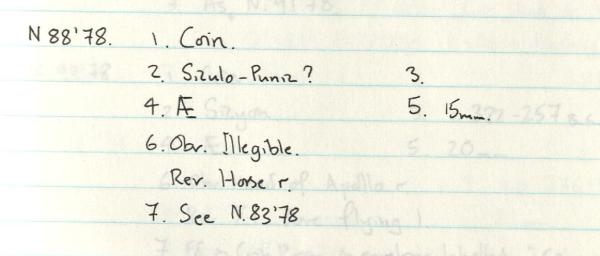 N 88'78. 1. Coin.
2. Siculo-Punic? 3.
4. Æ 5. 15mm.
6. Obv. Illegible.
Rev. Horse r.
7. See N.83'78